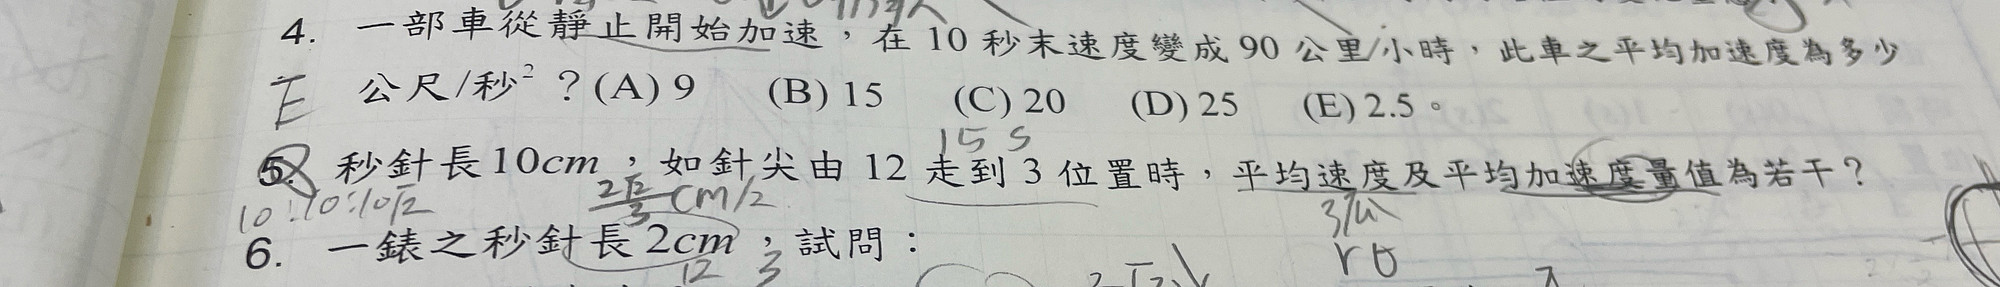 4. 一部車從靜止開始加速，在 10 秒末速度變成 90 公里/小時，此車之平均加速度為多少
E 公尺/秒² ？(A) 9 (B) 15 (C) 20 (D) 25 (E) 2.5。
15 s
5. 秒針長10cm，如針尖由 12 走到 3 位置時，平均速度及平均加速度量值為若干？
10:10:10√2 2√2/3 cm/2
6. 一錶之秒針長 2cm，試問：
12 3 rθ